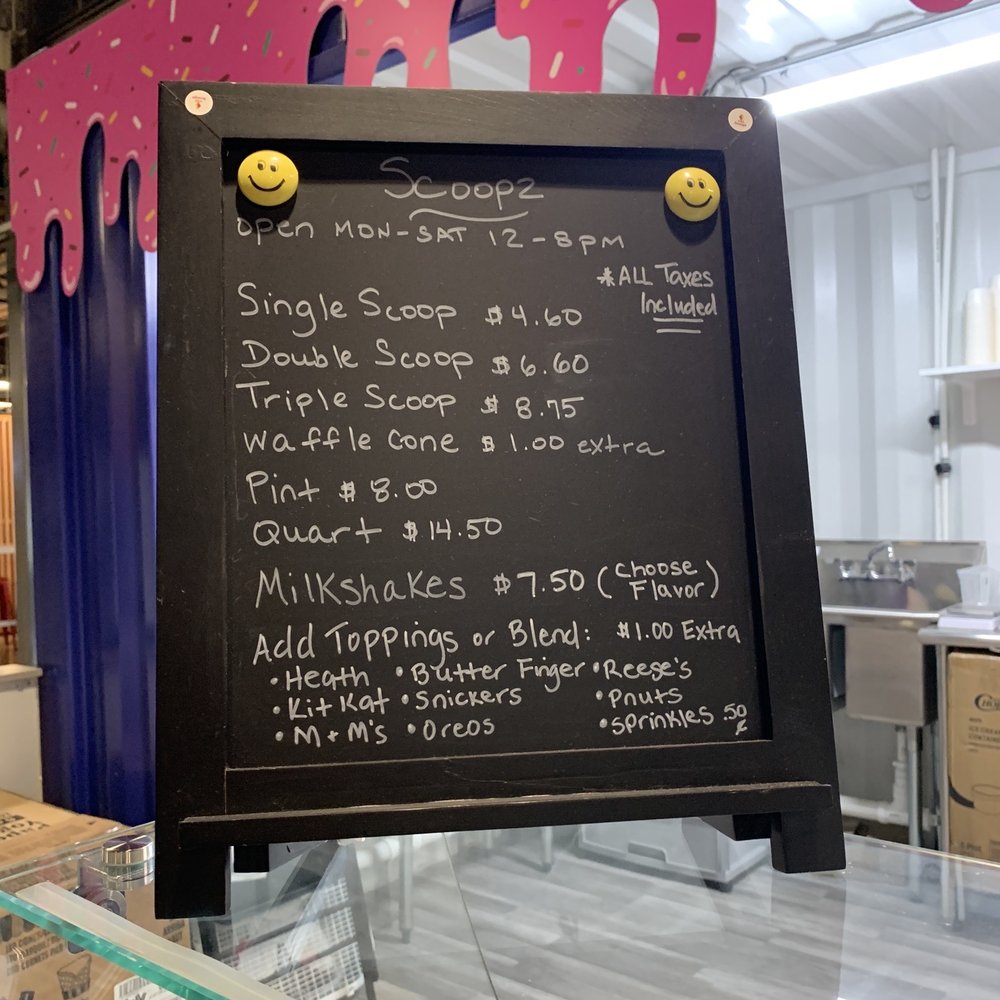 Scoopz
open MON-SAT 12-8PM
*ALL Taxes
Included
Single Scoop $4.60
Double Scoop $6.60
Triple Scoop $8.75
Waffle Cone $1.00 extra
Pint $8.00
Quart $14.50
Milkshakes $7.50 (Choose Flavor)
Add Toppings or Blend: $1.00 Extra
• Heath • Butter Finger • Reese's
• Kit Kat • Snickers • Pnuts
• M+M's • Oreos • Sprinkles .50¢